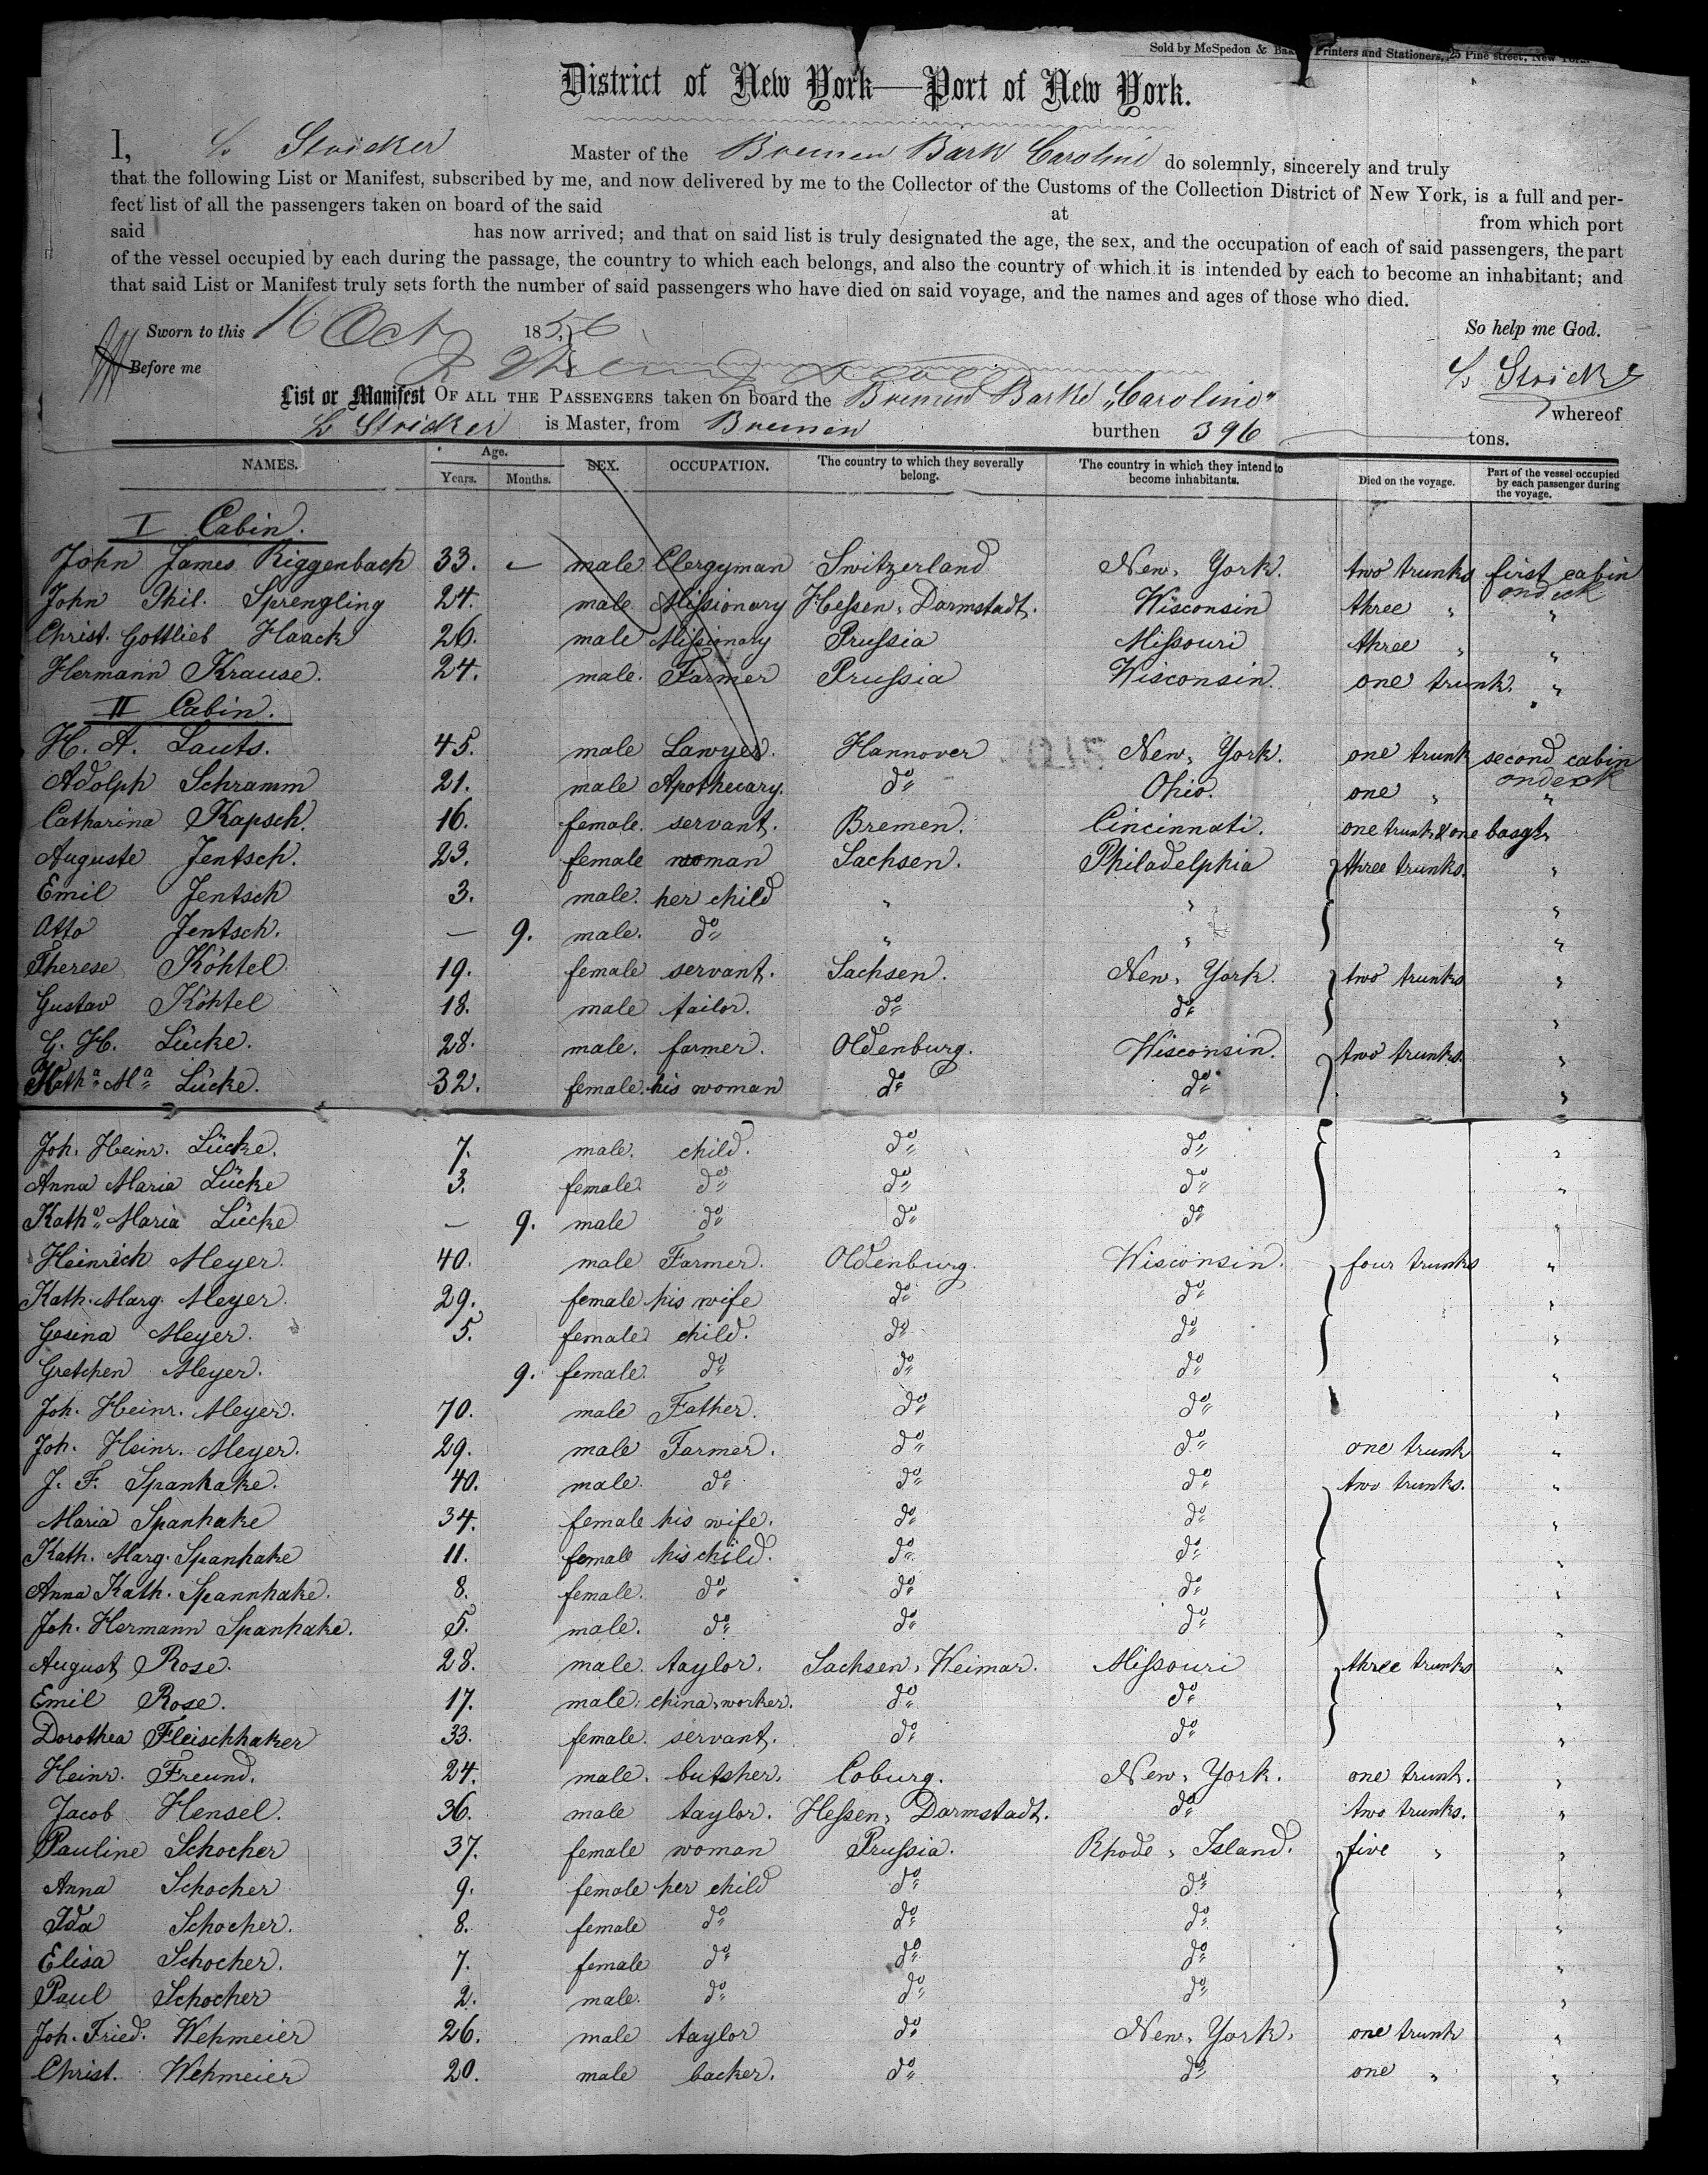 Sold by McSpedon & Printers and Stationers, 25 Pine street, New York.
District of New York—Port of New York.
I, L. Stricker Master of the Bremen Bark Caroline do solemnly, sincerely and truly
that the following List or Manifest, subscribed by me, and now delivered by me to the Collector of the Customs of the Collection District of New York, is a full and per-
fect list of all the passengers taken on board of the said at from which port
said has now arrived; and that on said list is truly designated the age, the sex, and the occupation of each of said passengers, the part
of the vessel occupied by each during the passage, the country to which each belongs, and also the country of which it is intended by each to become an inhabitant; and
that said List or Manifest truly sets forth the number of said passengers who have died on said voyage, and the names and ages of those who died.
Sworn to this 16 Oct 1856 So help me God.
Before me L. Stricker
List or Manifest OF ALL THE PASSENGERS taken on board the Bremen Barke „Caroline" whereof
L Stricker is Master, from Bremen burthen 396 tons.
NAMES. Age. Years. Months. SEX. OCCUPATION. The country to which they severally belong. The country in which they intend to become inhabitants. Died on the voyage. Part of the vessel occupied by each passenger during the voyage.
I Cabin.
John James Riggenbach 33. — male Clergyman Switzerland New York. two trunks first cabin on deck
John Phil. Sprengling 24. male Missionary Hessen Darmstadt. Wisconsin three " "
Christ. Gottlieb Haack 26. male Missionary Prussia Missouri three " "
Hermann Krause. 24. male. Farmer Prussia Wisconsin. one trunk. "
II Cabin.
H. A. Lauts. 45. male Lawyer. Hannover New York. one trunk second cabin on deck
Adolph Schramm 21. male Apothecary. do Ohio. one " "
Catharina Kapsch. 16. female. servant. Bremen. Cincinnati. one trunk & one basgt "
Auguste Jentsch. 23. female woman Sachsen. Philadelphia three trunks. "
Emil Jentsch 3. male. her child " " "
Otto Jentsch. — 9. male. do " " "
Therese Köhtel 19. female servant. Sachsen. New York. two trunks "
Gustav Köhtel 18. male tailor. do do "
G. H. Lücke. 28. male. farmer. Oldenburg. Wisconsin. two trunks. "
Katha Ma Lücke. 32. female. his woman do do "
Joh. Heinr. Lücke. 7. male. child. do do "
Anna Maria Lücke 3. female do do do "
Katha Maria Lücke — 9. male do do do "
Heinrich Meyer. 40. male Farmer. Oldenburg. Wisconsin. four trunks "
Kath. Marg. Meyer. 29. female his wife do do "
Gesina Meyer. 5. female child. do do "
Gretchen Meyer. 9. female. do do do "
Joh. Heinr. Meyer. 70. male Father. do do "
Joh. Heinr. Meyer. 29. male Farmer. do do one trunk "
J. F. Spanhake. 40. male. do do do two trunks. "
Maria Spanhake 34. female his wife. do do "
Kath. Marg. Spanhake 11. female his child. do do "
Anna Kath. Spannhake. 8. female. do do do "
Joh. Hermann Spanhake. 5. male. do do do "
August Rose. 28. male. taylor. Sachsen Weimar. Missouri three trunks "
Emil Rose. 17. male. china worker. do do "
Dorothea Fleischhaker 33. female. servant. do do "
Heinr. Freund. 24. male. butsher. Coburg. New York. one trunk. "
Jacob Hensel. 36. male taylor. Hessen Darmstadt. do two trunks. "
Pauline Schocher 37. female woman Prussia. Rhode Island. five " "
Anna Schocher 9. female her child do do "
Ida Schocher. 8. female do do do "
Elisa Schocher. 7. female do do do "
Paul Schocher 2. male. do do do "
Joh. Fried. Wehmeier 26. male taylor do New York. one trunk "
Christ. Wehmeier 20. male backer. do do one " "